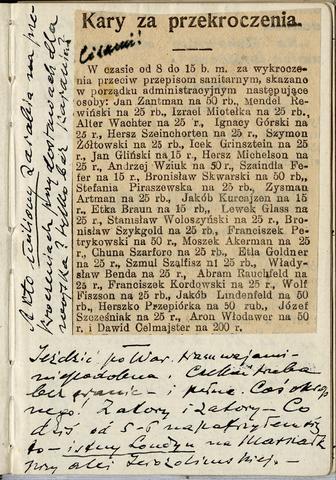 Kary za przekroczenia.
Cisami!
W czasie od 8 do 15 b. m. za wykrocze-
nia przeciw przepisom sanitarnym, skazano
w porządku administracyjnym następujące
osoby: Jan Zantman na 50 rb., Mendel Re-
wiński na 25 r., Izrael Miotełka na 25 rb.,
Alter Wachter na 25 r., Ignacy Górski na
25 r., Hersz Szeinchorten na 25 r., Szymon
Żółtowski na 25 r., Icek Grinsztein na 25
r., Jan Gliński na 15 r., Hersz Michelson na
25 r., Andrzej Wziuk na 50 r., Szaindla Fe-
fer na 15 r., Bronisław Skwarski na 50 rb.,
Stefania Piraszewska na 25 rb., Zysman
Artman na 25 rb., Jakób Kurcajzen na 15
rb., Etka Braun na 15 rb., Lewek Glass na
25 r., Stanisław Wołoszyński na 25 r., Bro-
nisław Szykgold na 25 rb., Franciszek Pe-
trykowski na 50 r., Moszek Akerman na 25
r., Chuna Szarforc na 25 rb., Etla Goldner
na 25 r., Szmul Szalfisz n1 25 rb., Włady-
sław Benda na 25 r., Abram Rauchfeld na
25 r., Franciszek Kordowski na 25 r., Wolf
Fiszson na 25 rb., Jakób Lindenfeld na 50
rb., Herszko Przepiórka na 50 rub., Józef
Szcześniak na 25 r., Aron Włodawer na 50
r. i Dawid Celmajster na 200 r.
A kto miliony zarabia na
dostawach dla
Jeździć po War. tramwajami-
niepodobna.
bez granic - i pełne.
Zatory i zatory - Co
dziś od 5-6
to - istny Londyn na Marszałk
przy alei Jerozolimskiej. -